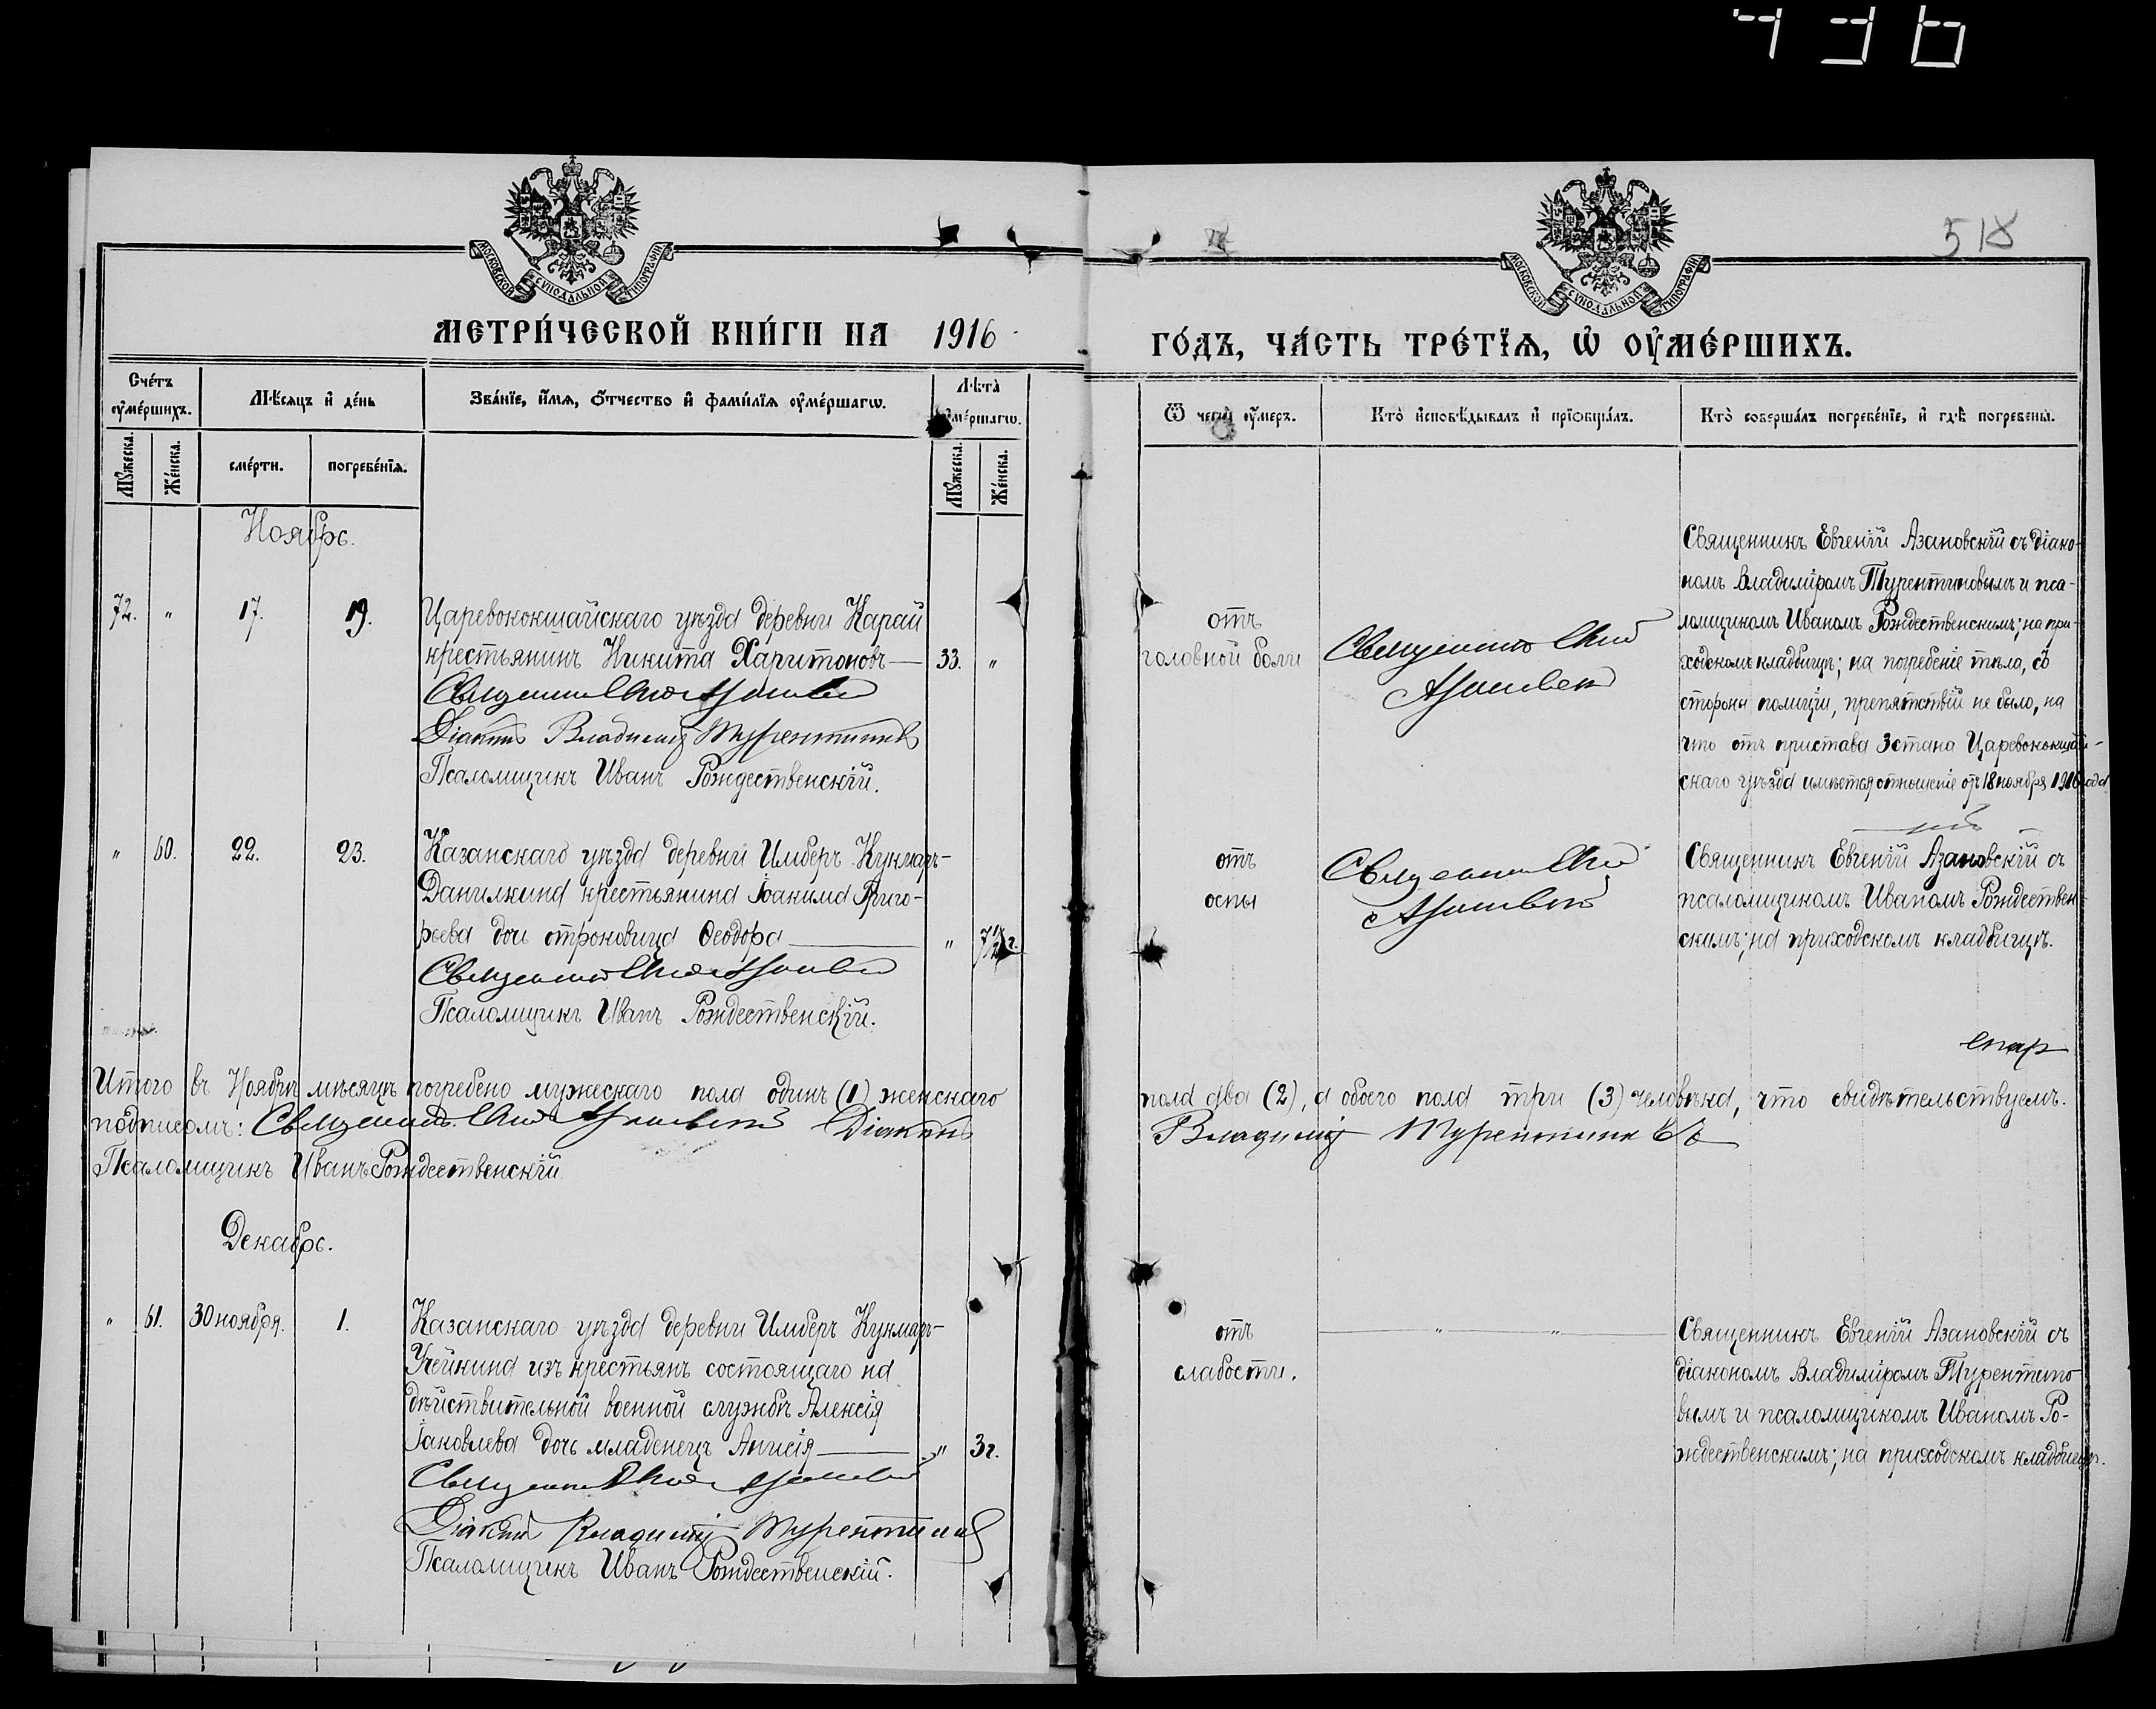 436
518
МОСКОВСКОЙ СѴНОДАЛЬНОЙ ТИПОГРАФІИ
МОСКОВСКОЙ СѴНОДАЛЬНОЙ ТИПОГРАФІИ
МЕТРИ́ЧЕСКОЙ КНИ́ГИ НА 1916
ГО́ДЪ, ЧА́СТЬ ТРЕ́ТЇѦ, Ѡ ОУ҆МЕ́РШИХЪ.
Сче́тъ оу҆ме́ршихъ.
Мꙋжеска.
Же́нска.
Мѣ́сяцъ и҆ де́нь
сме́рти.
погребе́нїѧ.
Зва́нїе, и҆́мѧ, ѻ҆́тчество и҆ фами́лїѧ оу҆ме́ршагѡ.
Лѣта̀ оу҆ме́ршагѡ.
Мꙋжеска.
Же́нска.
Ѿ чегѡ̀ оу҆́меръ.
Кто̀ и҆сповѣ́дывалъ и҆ прїѡбща́лъ.
Кто̀ соверша́лъ погребе́нїе, и҆ гдѣ̀ погребены̀.
Ноябрь.
72. " 17. 19.
Царевококшайскаго уѣзда деревни Карай
крестьянинъ Никита Харитоновъ — 33. "
Діаконъ Владимір Турентинов
Псаломщикъ Иванъ Рождественскій.
отъ
головной боли
Священникъ
Священникъ Евгеній Азановскій съ діако-
номъ Владиміромъ Турентиновымъ и пса-
ломщикомъ Иваномъ Рождественскимъ; на при-
ходскомъ кладбищѣ; на погребеніе тѣла, со
стороны полиціи, препятствій не было, на
что отъ пристава 3 стана Царевококшай-
скаго уѣзда имѣется отношеніе отъ 18 ноября 1916 года
" 60. 22. 23.
Казанскаго уѣзда деревни Имберъ Кунмаръ-
Данилкина крестьянина Іоакима Григо-
рьева дочь отроковица Ѳеодора — "
Псаломщикъ Иванъ Рождественскій.
отъ
оспы
Священникъ Евгеній Азановскій съ
псаломщикомъ Иваномъ Рождествен-
скимъ; на приходскомъ кладбищѣ.
Итого въ Ноябрѣ мѣсяцѣ погребено мужескаго пола одинъ (1) женскаго
пола два (2), а обоего пола три (3) человѣка, что свидѣтельствуемъ.
подписомъ: Священникъ Діаконъ
Владимір Турентинов
Псаломщикъ Иванъ Рождественскій
Декабрь.
" 61. 30 ноября. 1.
Казанскаго уѣзда деревни Имберъ Кунмаръ-
Учейкина изъ крестьянъ состоящаго на
дѣйствительной военной службѣ Алексія
Іаковлева дочь младенецъ Анисія — " 3 г.
Діаконъ Владимір Турентинов
Псаломщикъ Иванъ Рождественскій.
отъ
слабости.
— " — " —
Священникъ Евгеній Азановскій съ
діакономъ Владиміромъ Турентино-
вымъ и псаломщикомъ Иваномъ Ро-
ждественскимъ; на приходскомъ кладбищѣ.